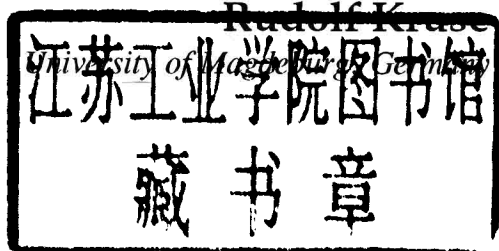 Rudolf Kruse
University of Magdeburg, Germany
江苏工业学院图书馆
藏书章